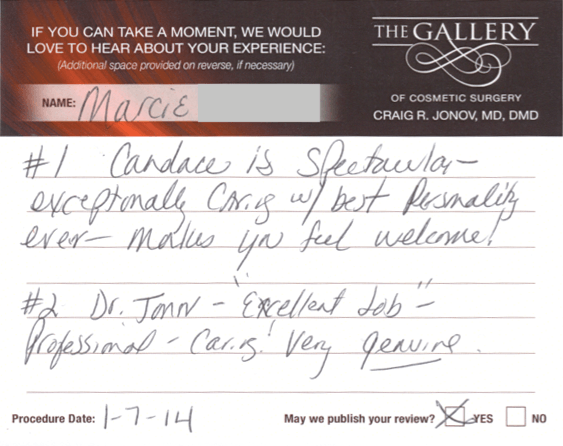 IF YOU CAN TAKE A MOMENT, WE WOULD
LOVE TO HEAR ABOUT YOUR EXPERIENCE:
(Additional space provided on reverse, if necessary)
NAME: Marcie
THE GALLERY
OF COSMETIC SURGERY
CRAIG R. JONOV, MD, DMD
#1 Candace is Spectacular-
exceptionally Caring w/ best Personality
ever- makes you feel welcome!
#2 Dr. Jonov - "Excellent Job" -
Professional - Caring! Very genuine.
Procedure Date: 1-7-14
May we publish your review? YES NO